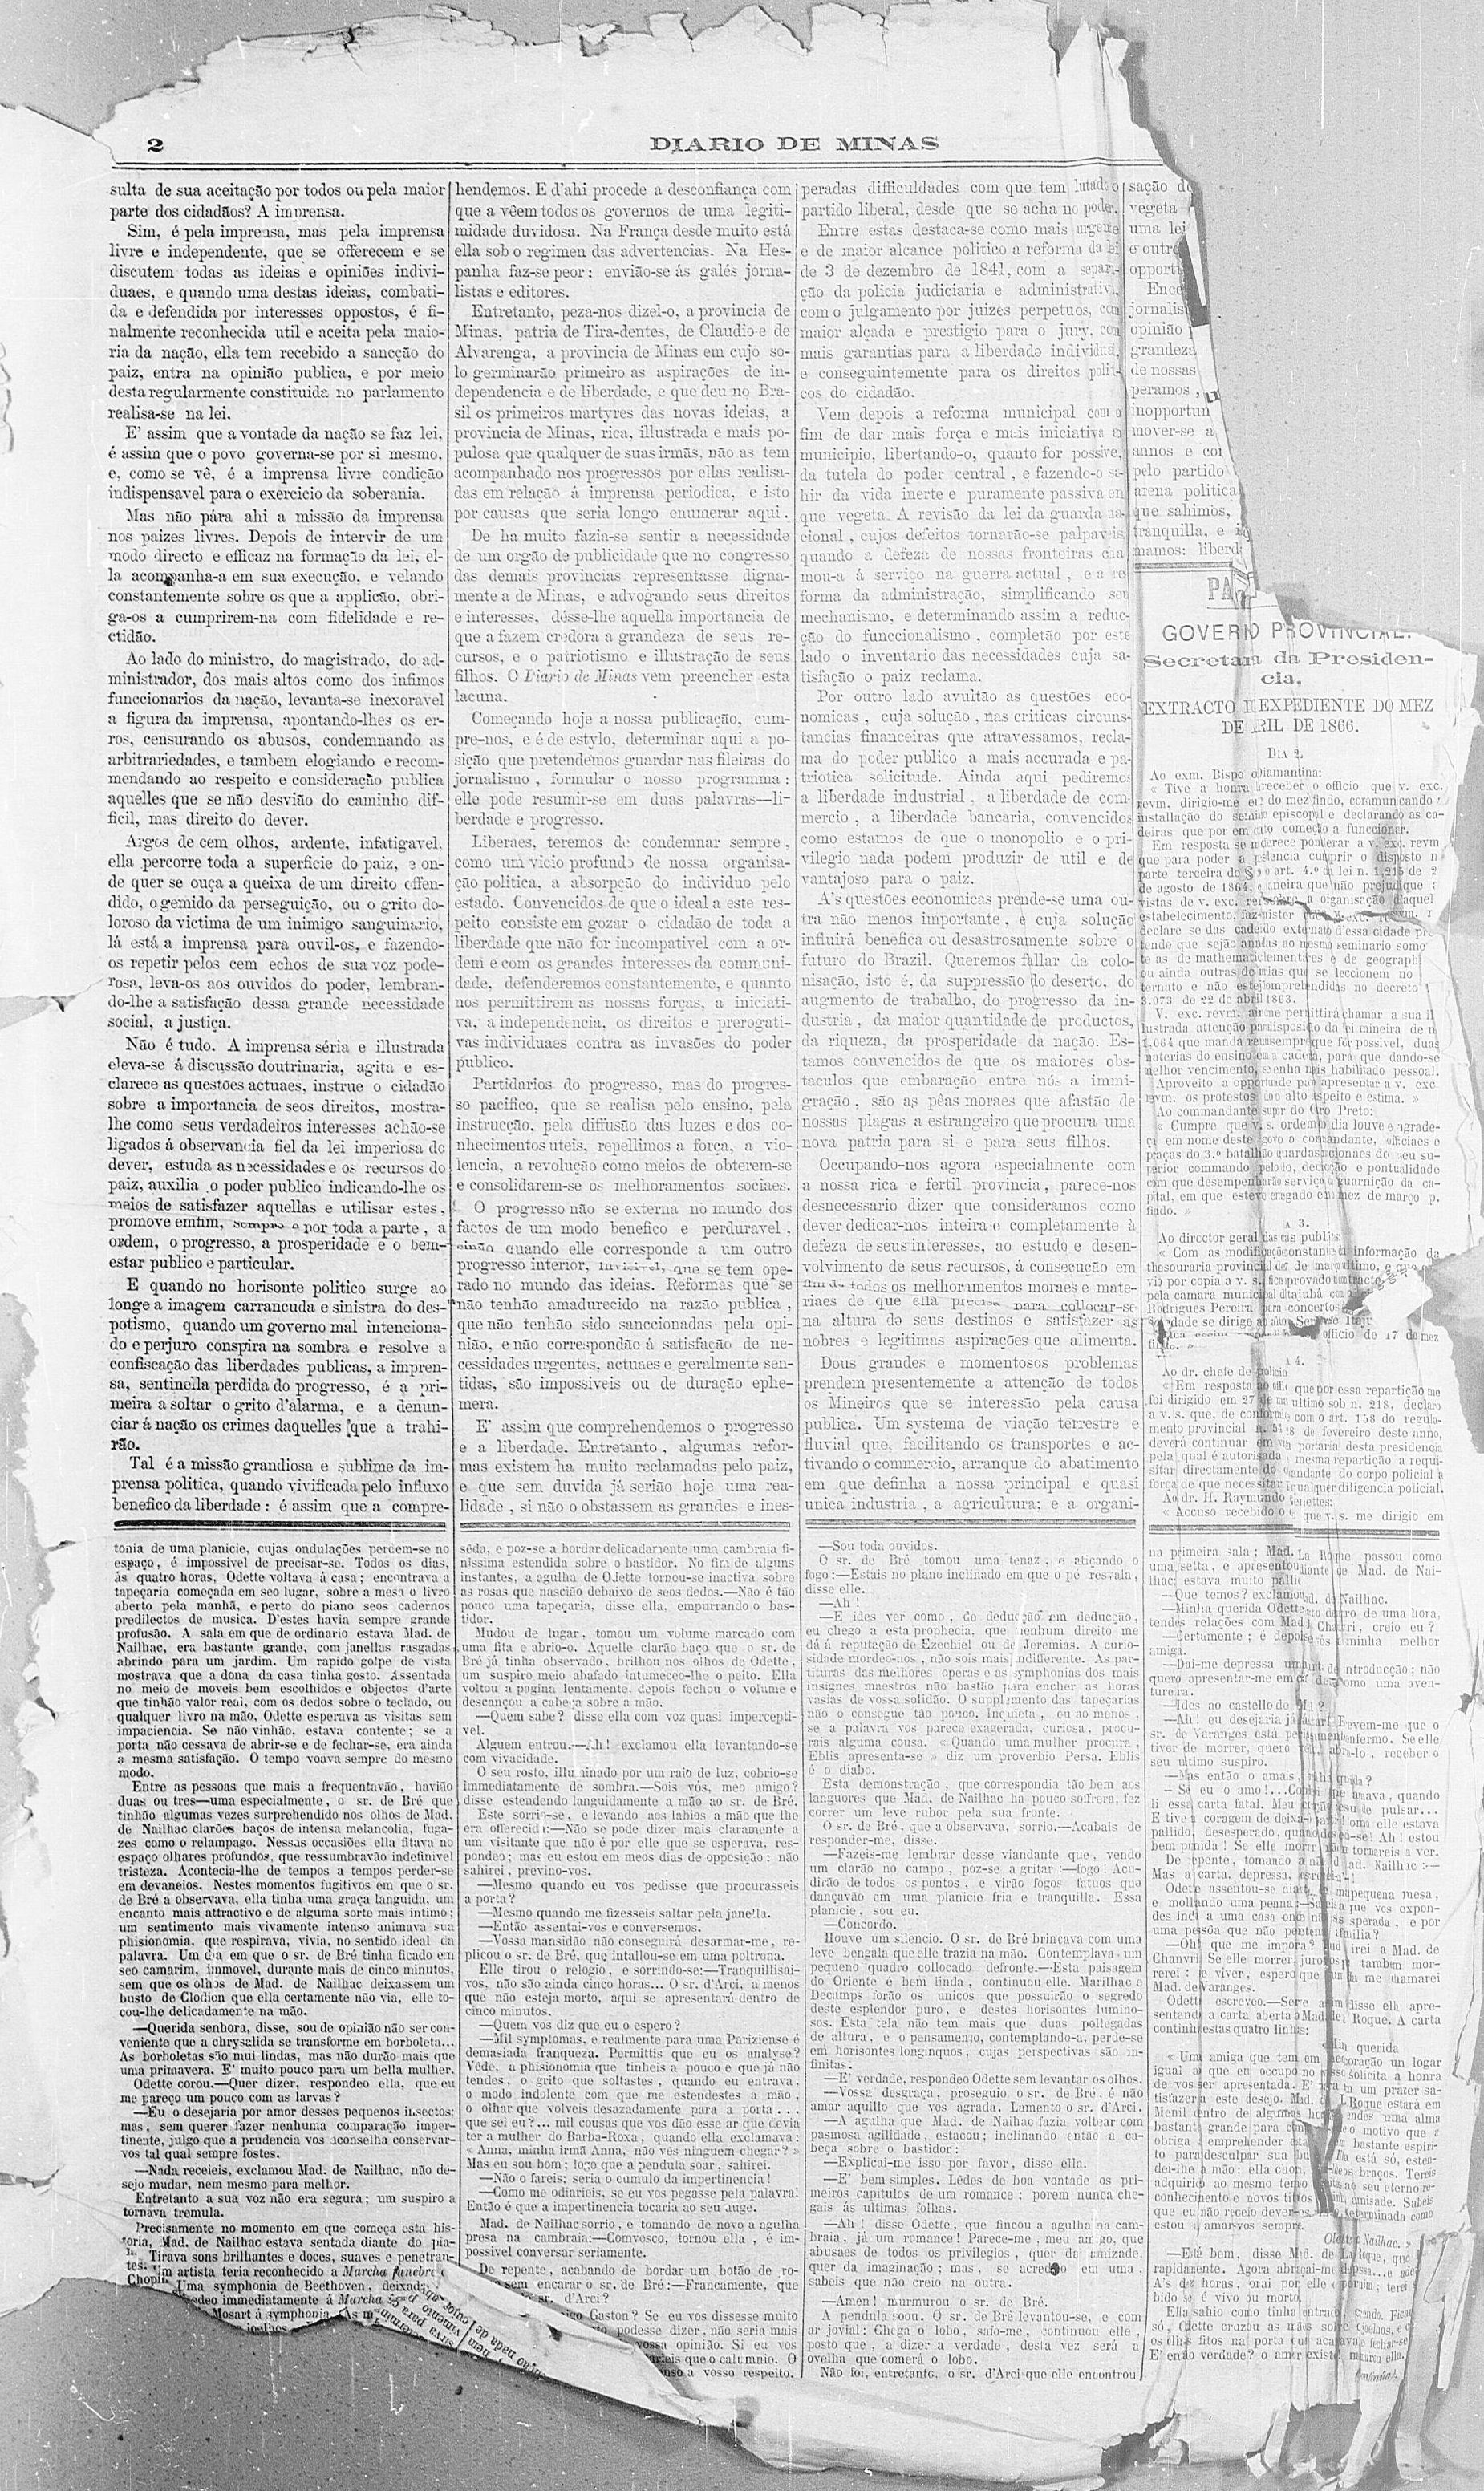 2
DIARIO DE MINAS
sulta de sua aceitação por todos ou pela maior
parte dos cidadãos? A imprensa.
Sim, é pela imprensa, mas pela imprensa
livre e independente, que se offerecem e se
discutem todas as ideias e opiniões indivi-
duaes, e quando uma destas ideias, combati-
da e defendida por interesses oppostos, é fi-
nalmente reconhecida util e aceita pela maio-
ria da nação, ella tem recebido a sancção do
paiz, entra na opinião publica, e por meio
desta regularmente constituida no parlamento
realisa-se na lei.
E' assim que a vontade da nação se faz lei,
é assim que o povo governa-se por si mesmo,
e, como se vê, é a imprensa livre condição
indispensavel para o exercicio da soberania.
Mas não pára ahi a missão da imprensa
nos paizes livres. Depois de intervir de um
modo directo e efficaz na formação da lei, el-
la acompanha-a em sua execução, e velando
constantemente sobre os que a applicão, obri-
ga-os a cumprirem-na com fidelidade e re-
ctidão.
Ao lado do ministro, do magistrado, do ad-
ministrador, dos mais altos como dos infimos
funccionarios da nação, levanta-se inexoravel
a figura da imprensa, apontando-lhes os er-
ros, censurando os abusos, condemnando as
arbitrariedades, e tambem elogiando e recom-
mendando ao respeito e consideração publica
aquelles que se não desvião do caminho dif-
ficil, mas direito do dever.
Argos de cem olhos, ardente, infatigavel,
ella percorre toda a superficie do paiz, e on-
de quer se ouça a queixa de um direito offen-
dido, o gemido da perseguição, ou o grito do-
loroso da victima de um inimigo sanguinario,
lá está a imprensa para ouvil-os, e fazendo-
os repetir pelos cem echos de sua voz pode-
rosa, leva-os aos ouvidos do poder, lembran-
do-lhe a satisfação dessa grande necessidade
social, a justiça.
Não é tudo. A imprensa séria e illustrada
eleva-se á discussão doutrinaria, agita e es-
clarece as questões actuaes, instrue o cidadão
sobre a importancia de seos direitos, mostra-
lhe como seus verdadeiros interesses achão-se
ligados á observancia fiel da lei imperiosa do
dever, estuda as necessidades e os recursos do
paiz, auxilia o poder publico indicando-lhe os
meios de satisfazer aquellas e utilisar estes,
promove emfim, sempre e por toda a parte, a
ordem, o progresso, a prosperidade e o bem-
estar publico e particular.
E quando no horisonte politico surge ao
longe a imagem carrancuda e sinistra do des-
potismo, quando um governo mal intenciona-
do e perjuro conspira na sombra e resolve a
confiscação das liberdades publicas, a impren-
sa, sentinella perdida do progresso, é a pri-
meira a soltar o grito d'alarma, e a denun-
ciar á nação os crimes daquelles que a trahi-
rão.
Tal é a missão grandiosa e sublime da im-
prensa politica, quando vivificada pelo influxo
benefico da liberdade: é assim que a compre-
hendemos. E d'ahi procede a desconfiança com
que a vêem todos os governos de uma legiti-
midade duvidosa. Na França desde muito está
ella sob o regimen das advertencias. Na Hes-
panha faz-se peor: envião-se ás galés jorna-
listas e editores.
Entretanto, peza-nos dizel-o, a provincia de
Minas, patria de Tira-dentes, de Claudio e de
Alvarenga, a provincia de Minas em cujo so-
lo germinarão primeiro as aspirações de in-
dependencia e de liberdade, e que deu no Bra-
sil os primeiros martyres das novas ideias, a
provincia de Minas, rica, illustrada e mais po-
pulosa que qualquer de suas irmãs, não as tem
acompanhado nos progressos por ellas realisa-
das em relação á imprensa periodica, e isto
por causas que seria longo enumerar aqui.
De ha muito fazia-se sentir a necessidade
de um orgão de publicidade que no congresso
das demais provincias representasse digna-
mente a de Minas, e advogando seus direitos
e interesses, désse-lhe aquella importancia de
que a fazem credora a grandeza de seus re-
cursos, e o patriotismo e illustração de seus
filhos. O Diario de Minas vem preencher esta
lacuna.
Começando hoje a nossa publicação, cum-
pre-nos, e é de estylo, determinar aqui a po-
sição que pretendemos guardar nas fileiras do
jornalismo, formular o nosso programma:
elle pode resumir-se em duas palavras—li-
berdade e progresso.
Liberaes, teremos de condemnar sempre,
como um vicio profundo de nossa organisa-
ção politica, a absorpção do individuo pelo
estado. Convencidos de que o ideal a este res-
peito consiste em gozar o cidadão de toda a
liberdade que não for incompativel com a or-
dem e com os grandes interesses da communi-
dade, defenderemos constantemente, e quanto
nos permittirem as nossas forças, a iniciati-
va, a independencia, os direitos e prerogati-
vas individuaes contra as invasões do poder
publico.
Partidarios do progresso, mas do progres-
so pacifico, que se realisa pelo ensino, pela
instrucção, pela diffusão das luzes e dos co-
nhecimentos uteis, repellimos a força, a vio-
lencia, a revolução como meios de obterem-se
e consolidarem-se os melhoramentos sociaes.
O progresso não se externa no mundo dos
factos de um modo benefico e perduravel,
sinão quando elle corresponde a um outro
progresso interior, invisivel, que se tem ope-
rado no mundo das ideias. Reformas que se
não tenhão amadurecido na razão publica,
que não tenhão sido sanccionadas pela opi-
nião, e não correspondão á satisfação de ne-
cessidades urgentes, actuaes e geralmente sen-
tidas, são impossiveis ou de duração ephe-
mera.
E' assim que comprehendemos o progresso
e a liberdade. Entretanto, algumas refor-
mas existem ha muito reclamadas pelo paiz,
e que sem duvida já serião hoje uma rea-
lidade, si não o obstassem as grandes e ines-
peradas difficuldades com que tem lutado o
partido liberal, desde que se acha no poder.
Entre estas destaca-se como mais urgente
e de maior alcance politico a reforma da lei
de 3 de dezembro de 1841, com a separa-
ção da policia judiciaria e administrativa,
com o julgamento por juizes perpetuos, com
maior alçada e prestigio para o jury, com
mais garantias para a liberdade individual,
e conseguintemente para os direitos politi-
cos do cidadão.
Vem depois a reforma municipal com o
fim de dar mais força e mais iniciativa ao
municipio, libertando-o, quanto for possivel,
da tutela do poder central, e fazendo-o sa-
hir da vida inerte e puramente passiva em
que vegeta. A revisão da lei da guarda na-
cional, cujos defeitos tornarão-se palpaveis,
quando a defeza de nossas fronteiras cha
mou-a á serviço na guerra actual, e a re
forma da administração, simplificando seu
mechanismo, e determinando assim a reduc-
ção do funccionalismo, completão por este
lado o inventario das necessidades cuja sa-
tisfação o paiz reclama.
Por outro lado avultão as questões eco-
nomicas, cuja solução, nas criticas circuns-
tancias financeiras que atravessamos, recla-
ma do poder publico a mais accurada e pa-
triotica solicitude. Ainda aqui pediremos
a liberdade industrial, a liberdade de com-
mercio, a liberdade bancaria, convencidos
como estamos de que o monopolio e o pri-
vilegio nada podem produzir de util e de
vantajoso para o paiz.
A's questões economicas prende-se uma ou-
tra não menos importante, e cuja solução
influirá benefica ou desastrosamente sobre o
futuro do Brazil. Queremos fallar da colo-
nisação, isto é, da suppressão do deserto, do
augmento de trabalho, do progresso da in-
dustria, da maior quantidade de productos,
da riqueza, da prosperidade da nação. Es-
tamos convencidos de que os maiores obs-
taculos que embaração entre nós a immi-
gração, são as pêas moraes que afastão de
nossas plagas a estrangeiro que procura uma
nova patria para si e para seus filhos.
Occupando-nos agora especialmente com
a nossa rica e fertil provincia, parece-nos
desnecessario dizer que consideramos como
dever dedicar-nos inteira e completamente à
defeza de seus interesses, ao estudo e desen-
volvimento de seus recursos, á consecução em
fim de todos os melhoramentos moraes e mate-
riaes de que ella precisa para collocar-se
na altura do seus destinos e satisfazer as
nobres e legitimas aspirações que alimenta.
Dous grandes e momentosos problemas
prendem presentemente a attenção de todos
os Mineiros que se interessão pela causa
publica. Um systema de viação terrestre e
fluvial que, facilitando os transportes e ac-
tivando o commercio, arranque do abatimento
em que definha a nossa principal e quasi
unica industria, a agricultura; e a organi-
sação de
vegeta
uma lei
e outre
opportu
Ence
jornalis
opinião
grandeza
de nossas
peramos,
inopportun
mover-se a
annos e
pelo partido
arena politica
que sahimos,
tranquilla, e
mamos: liberd
GOVERNO PROVINCIAL.
Secretaria da Presiden-
cia.
EXTRACTO EXPEDIENTE DO MEZ
DE ABRIL DE 1866.
DIA 2.
Ao exm. Bispo Diamantina:
« Tive a honra receber o officio que v. exc.
revm. dirigio-me do mez findo, communicando
installação do episcopal e declarando as ca-
deiras que por começão a funccionar.
Em resposta se ponderar a v. exc. revm
que para poder a cumprir o disposto n
parte terceira do art. 4.º lei n. 1,215 de 2
de agosto de 1864, maneira que não prejudique
vistas de v. exc. a organisação d'aquel
estabelecimento,
declare se das externato d'essa cidade
tende que sejão ao mesmo seminario
as de mathematicas elementares e de geographi
ou ainda outras que se leccionem no
ternato e não comprehendidas no decreto
3,073 de 22 de abril 1863.
V. exc. revm. permittirá chamar a sua
lustrada attenção disposição da lei mineira de n.
1,064 que manda sempre que fôr possivel, duas
materias do ensino cadeira, para que dando-se
melhor vencimento, mais habilitado pessoal.
Aproveito a apresentar a v. exc.
revm. os protestos do alto respeito e estima. »
Ao commandante do Ouro Preto:
« Cumpre que v. s. ordem dia louve e agrade-
ça em nome deste o commandante, officiaes e
praças do 3.º batalhão guardas nacionaes do seu su-
perior commando pelo e pontualidade
com que desempenharão serviço guarnição da ca-
pital, em que esteve mez de março p.
findo. »
3.
Ao director geral publicas
« Com as modificações constantes informação da
thesouraria provincial
vio por copia a v. s.
pela camara municipal
Rodrigues Pereira para concertos
officio de 17 do mez
findo. »
4.
Ao dr. chefe de policia
« Em resposta que por essa repartição me
foi dirigido em 27 ultimo sob n. 218, declaro
a v. s. que, de conformie com o art. 158 do regula-
mento provincial de fevereiro deste anno,
deverá continuar portaria desta presidencia
pela qual é autorisada mesma repartição a requi-
sitar directamente do commandante do corpo policial a
força de que necessitar qualquer diligencia policial.
Ao dr. H. Raymundo Genettes:
« Accuso recebido o que v. s. me dirigio em
tonia de uma planicie, cujas ondulações perdem-se no
espaço, é impossivel de precisar-se. Todos os dias,
ás quatro horas, Odette voltava á casa; encontrava a
tapeçaria começada em seo lugar, sobre a mesa o livro
aberto pela manhã, e perto do piano seos cadernos
predilectos de musica. D'estes havia sempre grande
profusão. A sala em que de ordinario estava Mad. de
Nailhac, era bastante grande, com janellas rasgadas
abrindo para um jardim. Um rapido golpe de vista
mostrava que a dona da casa tinha gosto. Assentada
no meio de moveis bem escolhidos e objectos d'arte
que tinhão valor real, com os dedos sobre o teclado, ou
qualquer livro na mão, Odette esperava as visitas sem
impaciencia. Se não vinhão, estava contente; se a
porta não cessava de abrir-se e de fechar-se, era ainda
a mesma satisfação. O tempo voava sempre do mesmo
modo.
Entre as pessoas que mais a frequentavão, havião
duas ou tres—uma especialmente, o sr. de Bré que
tinhão algumas vezes surprehendido nos olhos de Mad.
de Nailhac clarões baços de intensa melancolia, fuga-
zes como o relampago. Nessas occasiões ella fitava no
espaço olhares profundos, que ressumbravão indefinivel
tristeza. Acontecia-lhe de tempos a tempos perder-se
em devaneios. Nestes momentos fugitivos em que o sr.
de Bré a observava, ella tinha uma graça languida, um
encanto mais attractivo e de alguma sorte mais intimo;
um sentimento mais vivamente intenso animava sua
phisionomia, que respirava, vivia, no sentido ideal da
palavra. Um dia em que o sr. de Bré tinha ficado em
seo camarim, immovel, durante mais de cinco minutos,
sem que os olhos de Mad. de Nailhac deixassem um
busto de Clodion que ella certamente não via, elle to-
cou-lhe delicadamente na mão.
—Querida senhora, disse, sou de opinião não ser con-
veniente que a chrysalida se transforme em borboleta...
As borboletas são mui lindas, mas não durão mais que
uma primavera. E' muito pouco para um bella mulher.
Odette corou.—Quer dizer, respondeo ella, que eu
me pareço um pouco com as larvas?
—Eu o desejaria por amor desses pequenos insectos:
mas, sem querer fazer nenhuma comparação imper-
tinente, julgo que a prudencia vos aconselha conservar-
vos tal qual sempre fostes.
—Nada receieis, exclamou Mad. de Nailhac, não de-
sejo mudar, nem mesmo para melhor.
Entretanto a sua voz não era segura; um suspiro a
tornava tremula.
Precisamente no momento em que começa esta his-
toria, Mad. de Nailhac estava sentada diante do pia-
Tirava sons brilhantes e doces, suaves e penetran-
tes. artista teria reconhecido a Marcha funebre
Chopin. Uma symphonia de Beethoven, deixada
immediatamente á Marcha
Mosart á symphonia. As
joelhos
sêda, e poz-se a bordar delicadamente uma cambraia fi-
nissima estendida sobre o bastidor. No fim de alguns
instantes, a agulha de Odette tornou-se inactiva sobre
as rosas que nascião debaixo de seos dedos.—Não é tão
pouco uma tapeçaria, disse ella, empurrando o bas-
tidor.
Mudou de lugar, tomou um volume marcado com
uma fita e abrio-o. Aquelle clarão baço que o sr. de
Bré já tinha observado, brilhou nos olhos de Odette,
um suspiro meio abafado intumeceo-lhe o peito. Ella
voltou a pagina lentamente, depois fechou o volume e
descançou a cabeça sobre a mão.
—Quem sabe? disse ella com voz quasi impercepti-
vel.
Alguem entrou.—Ah! exclamou ella levantando-se
com vivacidade.
O seu rosto, illuminado por um raio de luz, cobrio-se
immediatamente de sombra.—Sois vós, meo amigo?
disse estendendo languidamente a mão ao sr. de Bré.
Este sorrio-se, e levando aos labios a mão que lhe
era offerecida:—Não se pode dizer mais claramente a
um visitante que não é por elle que se esperava, res-
pondeo; mas eu estou em meos dias de opposição: não
sahirei, previno-vos.
—Mesmo quando eu vos pedisse que procurasseis
a porta?
—Mesmo quando me fizesseis saltar pela janella.
—Então assentai-vos e conversemos.
—Vossa mansidão não conseguirá desarmar-me, re-
plicou o sr. de Bré, que intallou-se em uma poltrona.
Elle tirou o relogio, e sorrindo-se:—Tranquillisai-
vos, não são ainda cinco horas... O sr. d'Arci, a menos
que não esteja morto, aqui se apresentará dentro de
cinco minutos.
—Quem vos diz que eu o espero?
—Mil symptomas, e realmente para uma Pariziense é
demasiada franqueza. Permittis que eu os analyse?
Vêde, a phisionomia que tinheis a pouco e que já não
tendes, o grito que soltastes, quando eu entrava,
o modo indolente com que me estendestes a mão,
o olhar que volveis desazadamente para a porta...
que sei eu?... mil cousas que vos dão esse ar que devia
ter a mulher do Barba-Roxa, quando ella exclamava:
« Anna, minha irmã Anna, não vês ninguem chegar? »
Mas eu sou bom; logo que a pendula soar, sahirei.
—Não o fareis; seria o cumulo da impertinencia!
—Como me odiarieis, se eu vos pegasse pela palavra!
Então é que a impertinencia tocaria ao seu auge.
Mad. de Nailhac sorrio, e tomando de novo a agulha
presa na cambraia:—Comvosco, tornou ella, é im-
possivel conversar seriamente.
De repente, acabando de bordar um botão de ro-
sem encarar o sr. de Bré:—Francamente, que
sr. d'Arci?
Gaston? Se eu vos dissesse muito
podesse dizer, não seria mais
vossa opinião. Si eu vos
que o calumnio. O
a vosso respeito.
—Sou toda ouvidos.
O sr. de Bré tomou uma tenaz, e atiçando o
fogo:—Estais no plano inclinado em que o pé resvala,
disse elle.
—Ah!
—E ides ver como, de deducção em deducção,
eu chego a esta prophecia, que nenhum direito me
dá á reputação de Ezechiel ou de Jeremias. A curio-
sidade mordeo-nos, não sois mais indifferente. As par-
tituras das melhores operas e as symphonias dos mais
insignes maestros não bastão para encher as horas
vasias de vossa solidão. O supplemento das tapeçarias
não o consegue tão pouco. Inquieta, ou ao menos,
se a palavra vos parece exagerada, curiosa, procu-
rais alguma cousa. « Quando uma mulher procura,
Eblis apresenta-se » diz um proverbio Persa. Eblis
é o diabo.
Esta demonstração, que correspondia tão bem aos
languores que Mad. de Nailhac ha pouco soffrera, fez
correr um leve rubor pela sua fronte.
O sr. de Bré, que a observava, sorrio.—Acabais de
responder-me, disse.
—Fazeis-me lembrar desse viandante que, vendo
um clarão no campo, poz-se a gritar:—fogo! Acu-
dirão de todos os pontos, e virão fogos fatuos que
dançavão em uma planicie fria e tranquilla. Essa
planicie, sou eu.
—Concordo.
Houve um silencio. O sr. de Bré brincava com uma
leve bengala que elle trazia na mão. Contemplava um
pequeno quadro collocado defronte.—Esta paisagem
do Oriente é bem linda, continuou elle. Marilhac e
Decamps forão os unicos que possuirão o segredo
deste esplendor puro, e destes horisontes lumino-
sos. Esta tela não tem mais que duas pollegadas
de altura, e o pensamento, contemplando-a, perde-se
em horisontes longinquos, cujas perspectivas são in-
finitas.
—E' verdade, respondeo Odette sem levantar os olhos.
—Vossa desgraça, proseguio o sr. de Bré, é não
amar aquillo que vos agrada. Lamento o sr. d'Arci.
—A agulha que Mad. de Nailhac fazia voltear com
pasmosa agilidade, estacou; inclinando então a ca-
beça sobre o bastidor:
—Explicai-me isso por favor, disse ella.
—E' bem simples. Lêdes de boa vontade os pri-
meiros capitulos de um romance: porem nunca che-
gais ás ultimas folhas.
—Ah! disse Odette, que fincou a agulha na cam-
braia, já um romance! Parece-me, meu amigo, que
abusaes de todos os privilegios, quer da amizade,
quer da imaginação; mas, se acredito em uma,
sabeis que não creio na outra.
—Amen! murmurou o sr. de Bré.
A pendula soou. O sr. de Bré levantou-se, e com
ar jovial: Chega o lobo, safo-me, continuou elle,
posto que, a dizer a verdade, desta vez será a
ovelha que comerá o lobo.
Não foi, entretanto, o sr. d'Arci que elle encontrou
na primeira sala; Mad. La Roque passou como
uma setta, e apresentou diante de Mad. de Nai-
lhac; estava muito
—Que temos? exclamou Mad. de Nailhac.
—Minha querida Odette de uma hora,
tendes relações com Mad. Chanvri, creio eu?
—Certamente; é depois minha melhor
amiga.
—Dai-me depressa uma de introducção; não
quero apresentar-me em como uma aven-
tureira.
—Ides ao castello de
—Ah! eu desejaria já Escrevem-me que o
sr. de Varanges está enfermo. Se elle
tiver de morrer, quero receber o
seu ultimo suspiro.
—Mas então o amais,
—Se eu o amo!... quando
li essa carta fatal. Meu de pulsar...
E tive a coragem de Como elle estava
pallido, desesperado, quando Ah! estou
bem punida! Se elle morrer tornareis a ver.
De repente, tomando a Mad. Nailhac:—
Mas a carta, depressa,
Odette assentou-se pequena mesa,
e molhando uma penna: que vos expon-
des indo a uma casa onde esperada, e por
uma pessoa que não familia?
—Oh! que me importa? irei a Mad. de
Chanvri. Se elle morrer, tambem mor-
rerei: se viver, espero que me chamarei
Mad. de Varanges.
Odette escreveo.—Serve disse ella apre-
sentando a carta aberta á Mad. Roque. A carta
continha estas quatro linhas:
querida
« Uma amiga que tem em coração um logar
igual a que eu occupo no solicita a honra
de vos ser apresentada. E' um prazer sa-
tisfazer a este desejo. Mad. Roque estará em
Menil dentro de algumas tendes uma alma
bastante grande para o motivo que a
obriga a emprehender bastante espiri-
to para desculpar sua está só, esten-
dei-lhe a mão; ella braços. Tereis
adquirido ao mesmo tempo ao seu eterno re-
conhecimento e novos titulos amisade. Sabeis
que eu não receio dever-vos determinada como
estou a amar-vos sempre.
Odette Nailhac. »
—Está bem, disse Mad. de La Roque, que
rapidamente. Agora abraçai-me depressa...
A's dez horas, orai por elle terei
bido se é vivo ou morto.
Ella sahio como tinha entrado, Fican
só, Odette cruzou as mãos sobre joelhos, e
os olhos fitos na porta que acabava fechar-se
E' então verdade? o amor existe, murmurou ella.
(Continúa).